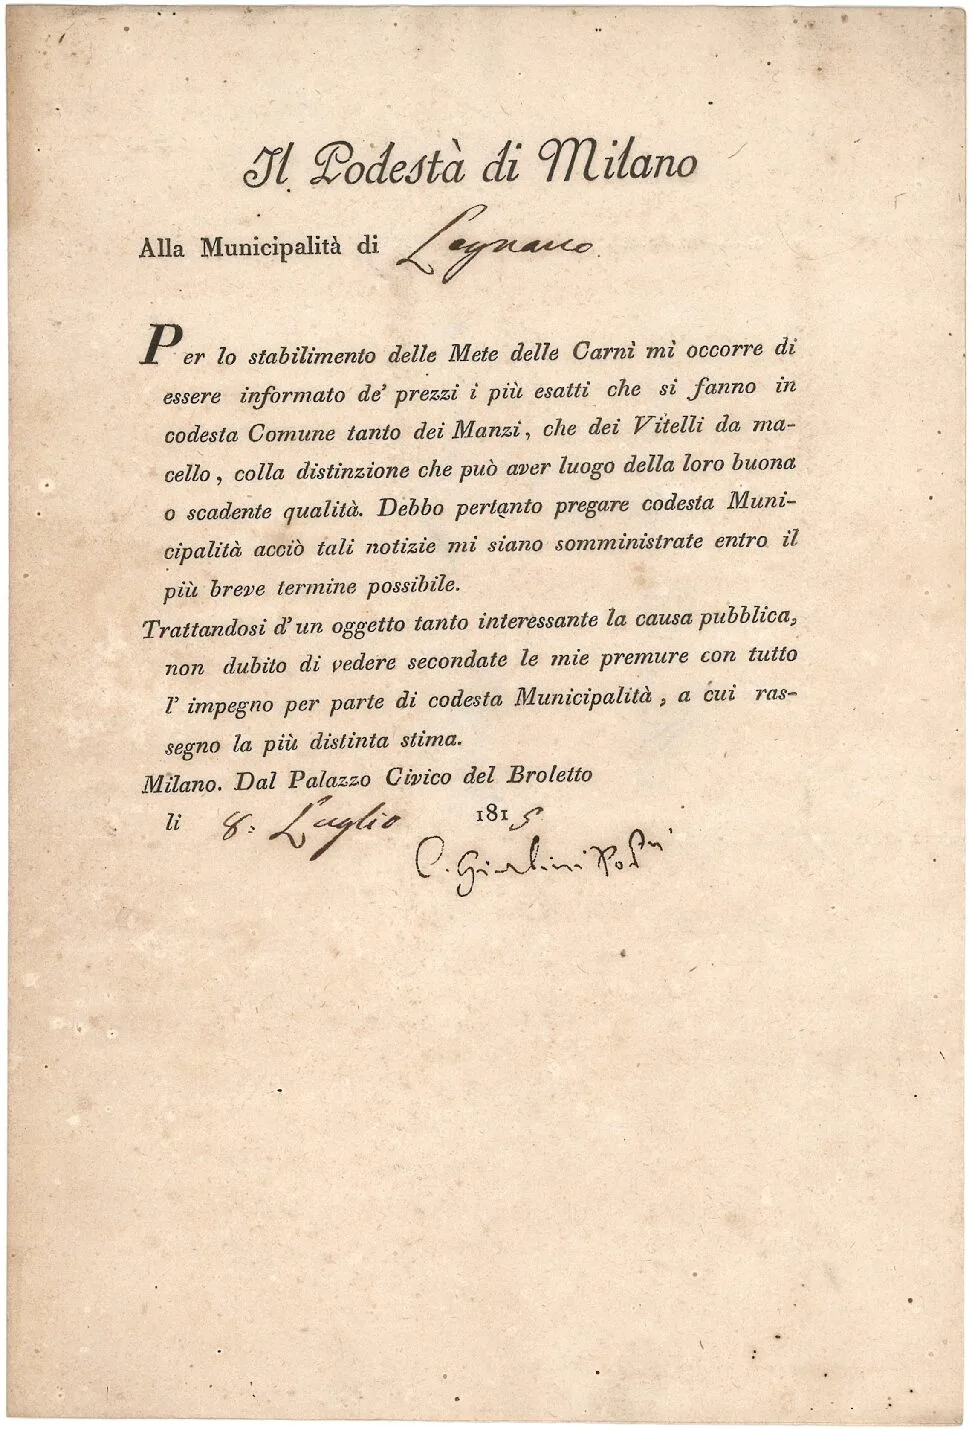 Il Podestà di Milano
Alla Municipalità di Legnano.
Per lo stabilimento delle Mete delle Carni mi occorre di
essere informato de' prezzi i più esatti che si fanno in
codesta Comune tanto dei Manzi, che dei Vitelli da ma-
cello, colla distinzione che può aver luogo della loro buona
o scadente qualità. Debbo pertanto pregare codesta Muni-
cipalità acciò tali notizie mi siano somministrate entro il
più breve termine possibile.
Trattandosi d'un oggetto tanto interessante la causa pubblica,
non dubito di vedere secondate le mie premure con tutto
l'impegno per parte di codesta Municipalità, a cui ras-
segno la più distinta stima.
Milano. Dal Palazzo Civico del Broletto
li 8: Luglio 1815
C. Giulini